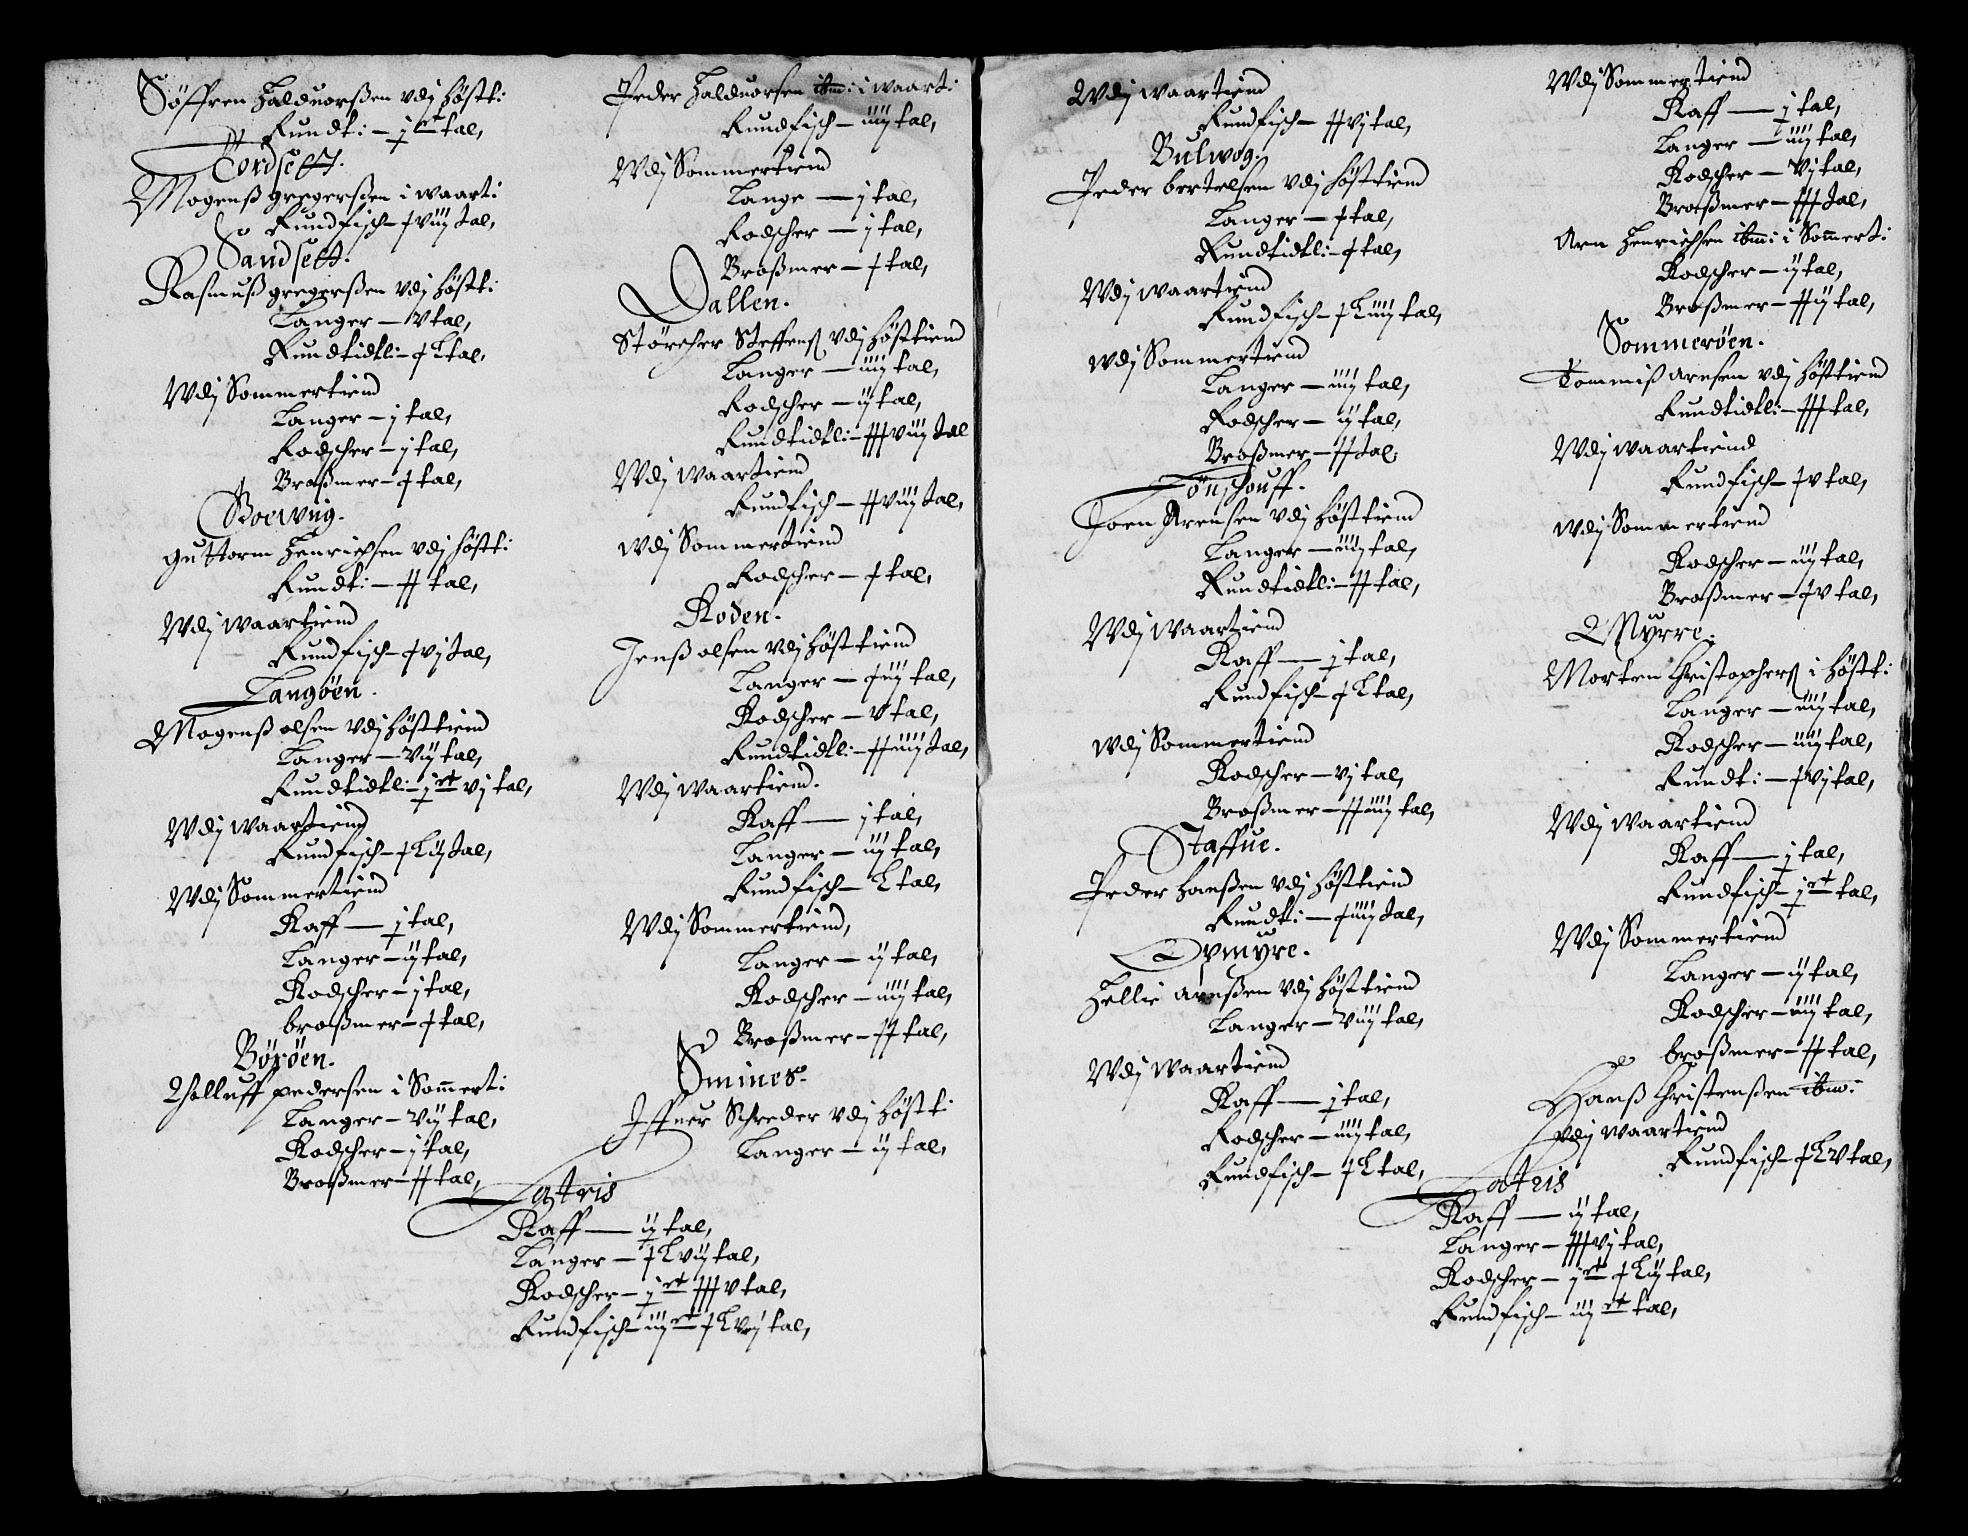 Söffren Halduorßen vdj Høstt:
Rundt: – j ct tal,
Tordsett.
Mogenß gregerßen i waart:
Rundfisch – ɟ viij tal,
Sandsett.
Rasmuß gregerßen vdj høstt:
Langer – v tal,
Rundtidtl: – ɟ L tal,
Wdj Sommertiend
Langer – j tal,
Rodscher – j tal,
Broßmer – ɟ tal,
Guttorm Henrichsen vdj høstt:
Rundt: – ɟɟ tal,
Wdj waartiend
Rundfisch – ɟ vj tal,
Langøen.
Mogenß olsen vdj høsttiend
Langer – vij tal,
Rundtidtl: – j ct vj tal,
Wdj waartiend
Rundfisch – ɟ L ij tal,
Wdj Sommertiend
Raff — j tal,
Langer – ij tal,
Rodscher – j tal,
broßmer – ɟ tal,
Børøen.
Tholluff pedersen i Sommert:
Langer – vij tal,
Rodscher – j tal,
Broßmer – ɟɟ tal,
Peder Halduorsen ibm: i waart:
Rundfisch – iiij tal,
Wdj Sommertiend
Lange — j tal,
Rodscher — j tal,
Broßmer – ɟ tal,
Dallen.
Störcher Steffens vdj høsttiend
Langer – iiij tal,
Rodscher – ij tal,
Rundtidtl: – ɟɟɟ viij tal
Wdj waartiend
Rundfisch – ɟɟ viij tal,
Wdj Sommertiend
Rodscher – ɟ tal,
Roden.
Jenß olsen vdj høsttiend
Langer – ɟ iij tal,
Rodscher – v tal,
Rundtidtl: – ɟɟ iiij tal,
Wdj waartiend.
Raff — j tal,
Langer – iij tal,
Rundfisch – L tal,
Wdj Sommertiend,
Langer – ij tal,
Rodscher – iiij tal,
Broßmer – ɟɟ tal,
Smines.
Iffuer Schreder vdj høstt:
Langer – ij tal,
Latris
Raff — ij tal,
Langer – ɟ L vij tal,
Rodscher – j ct ɟɟɟ v tal,
Rundfisch – iij ct ɟ L vj tal,
Wdj waartiend
Rundfisch – ɟɟ vj tal,
Bulwog.
Peder bertelsen vdj høsttiend
Langer – ɟ tal,
Rundtidtl: – ɟ tal,
Wdj waartiend
Rundfisch – ɟ L iiij tal,
Wdj Sommertiend
Langer – iiij tal,
Rodscher – ij tal,
Broßmer – ɟɟ tal,
Tönschouff.
Joen Arensen vdj høsttiend
Langer – iiij tal,
Rundtidtl: – ɟɟ tal,
Wdj waartiend
Raff — j tal,
Rundfisch – ɟ L tal,
Wdj Sommertiend
Rodscher – vj tal,
Broßmer – ɟɟ iiij tal,
Staffue.
Peder Hanßen vdj høsttiend
Rundt: – ɟ iiij tal,
Opmyre.
Hellie arnßen vdj høsttiend
Langer – viij tal,
Wdj waartiend
Raff — j tal,
Rodscher – iiij tal,
Rundfisch – ɟ L tal,
Wdj Sommertiend
Raff — j tal,
Langer – iiij tal,
Rodscher – vj tal,
Broßmer – ɟɟɟ tal,
Arn Henrichsen ibm: i Sommert:
Rodscher – ij tal,
Broßmer – ɟɟ ij tal,
Sommerøen.
Tommiß arnsen vdj høsttiend
Rundtidtl: – ɟɟɟ tal,
Wdj waartiend
Rundfisch – ɟ v tal,
Wdj Sommertiend
Rodscher – iij tal,
Broßmer – ɟ v tal,
Myrre.
Morten Christophers i høstt:
Langer – iiij tal,
Rodscher – iiij tal,
Rundt: – ɟ vj tal,
Wdj waartiend
Raff — j tal,
Rundfisch – j ct tal,
Wdj Sommertiend
Langer – ij tal,
Rodscher – iiij tal,
broßmer – ɟɟ tal,
Hanß Christenßen ibm:
vdj waartiend
Rundfisch – ɟ L v tal,
Latris
Raff — ij tal,
Langer – ɟɟɟ vj tal,
Rodscher – j ct ɟ L ij tal,
Rundfisch – iij ct tal,